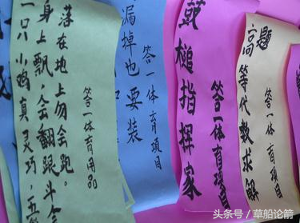 一只小鸭真灵巧,五
身上飘,会翻跟斗会
落在地上勿会跑.
答一体育用品
漏掉也要装
答一体育项目
鼓槌指挥家
答一体育项目
高等代数求解
题
答一体育项目
头条号/草船论箭